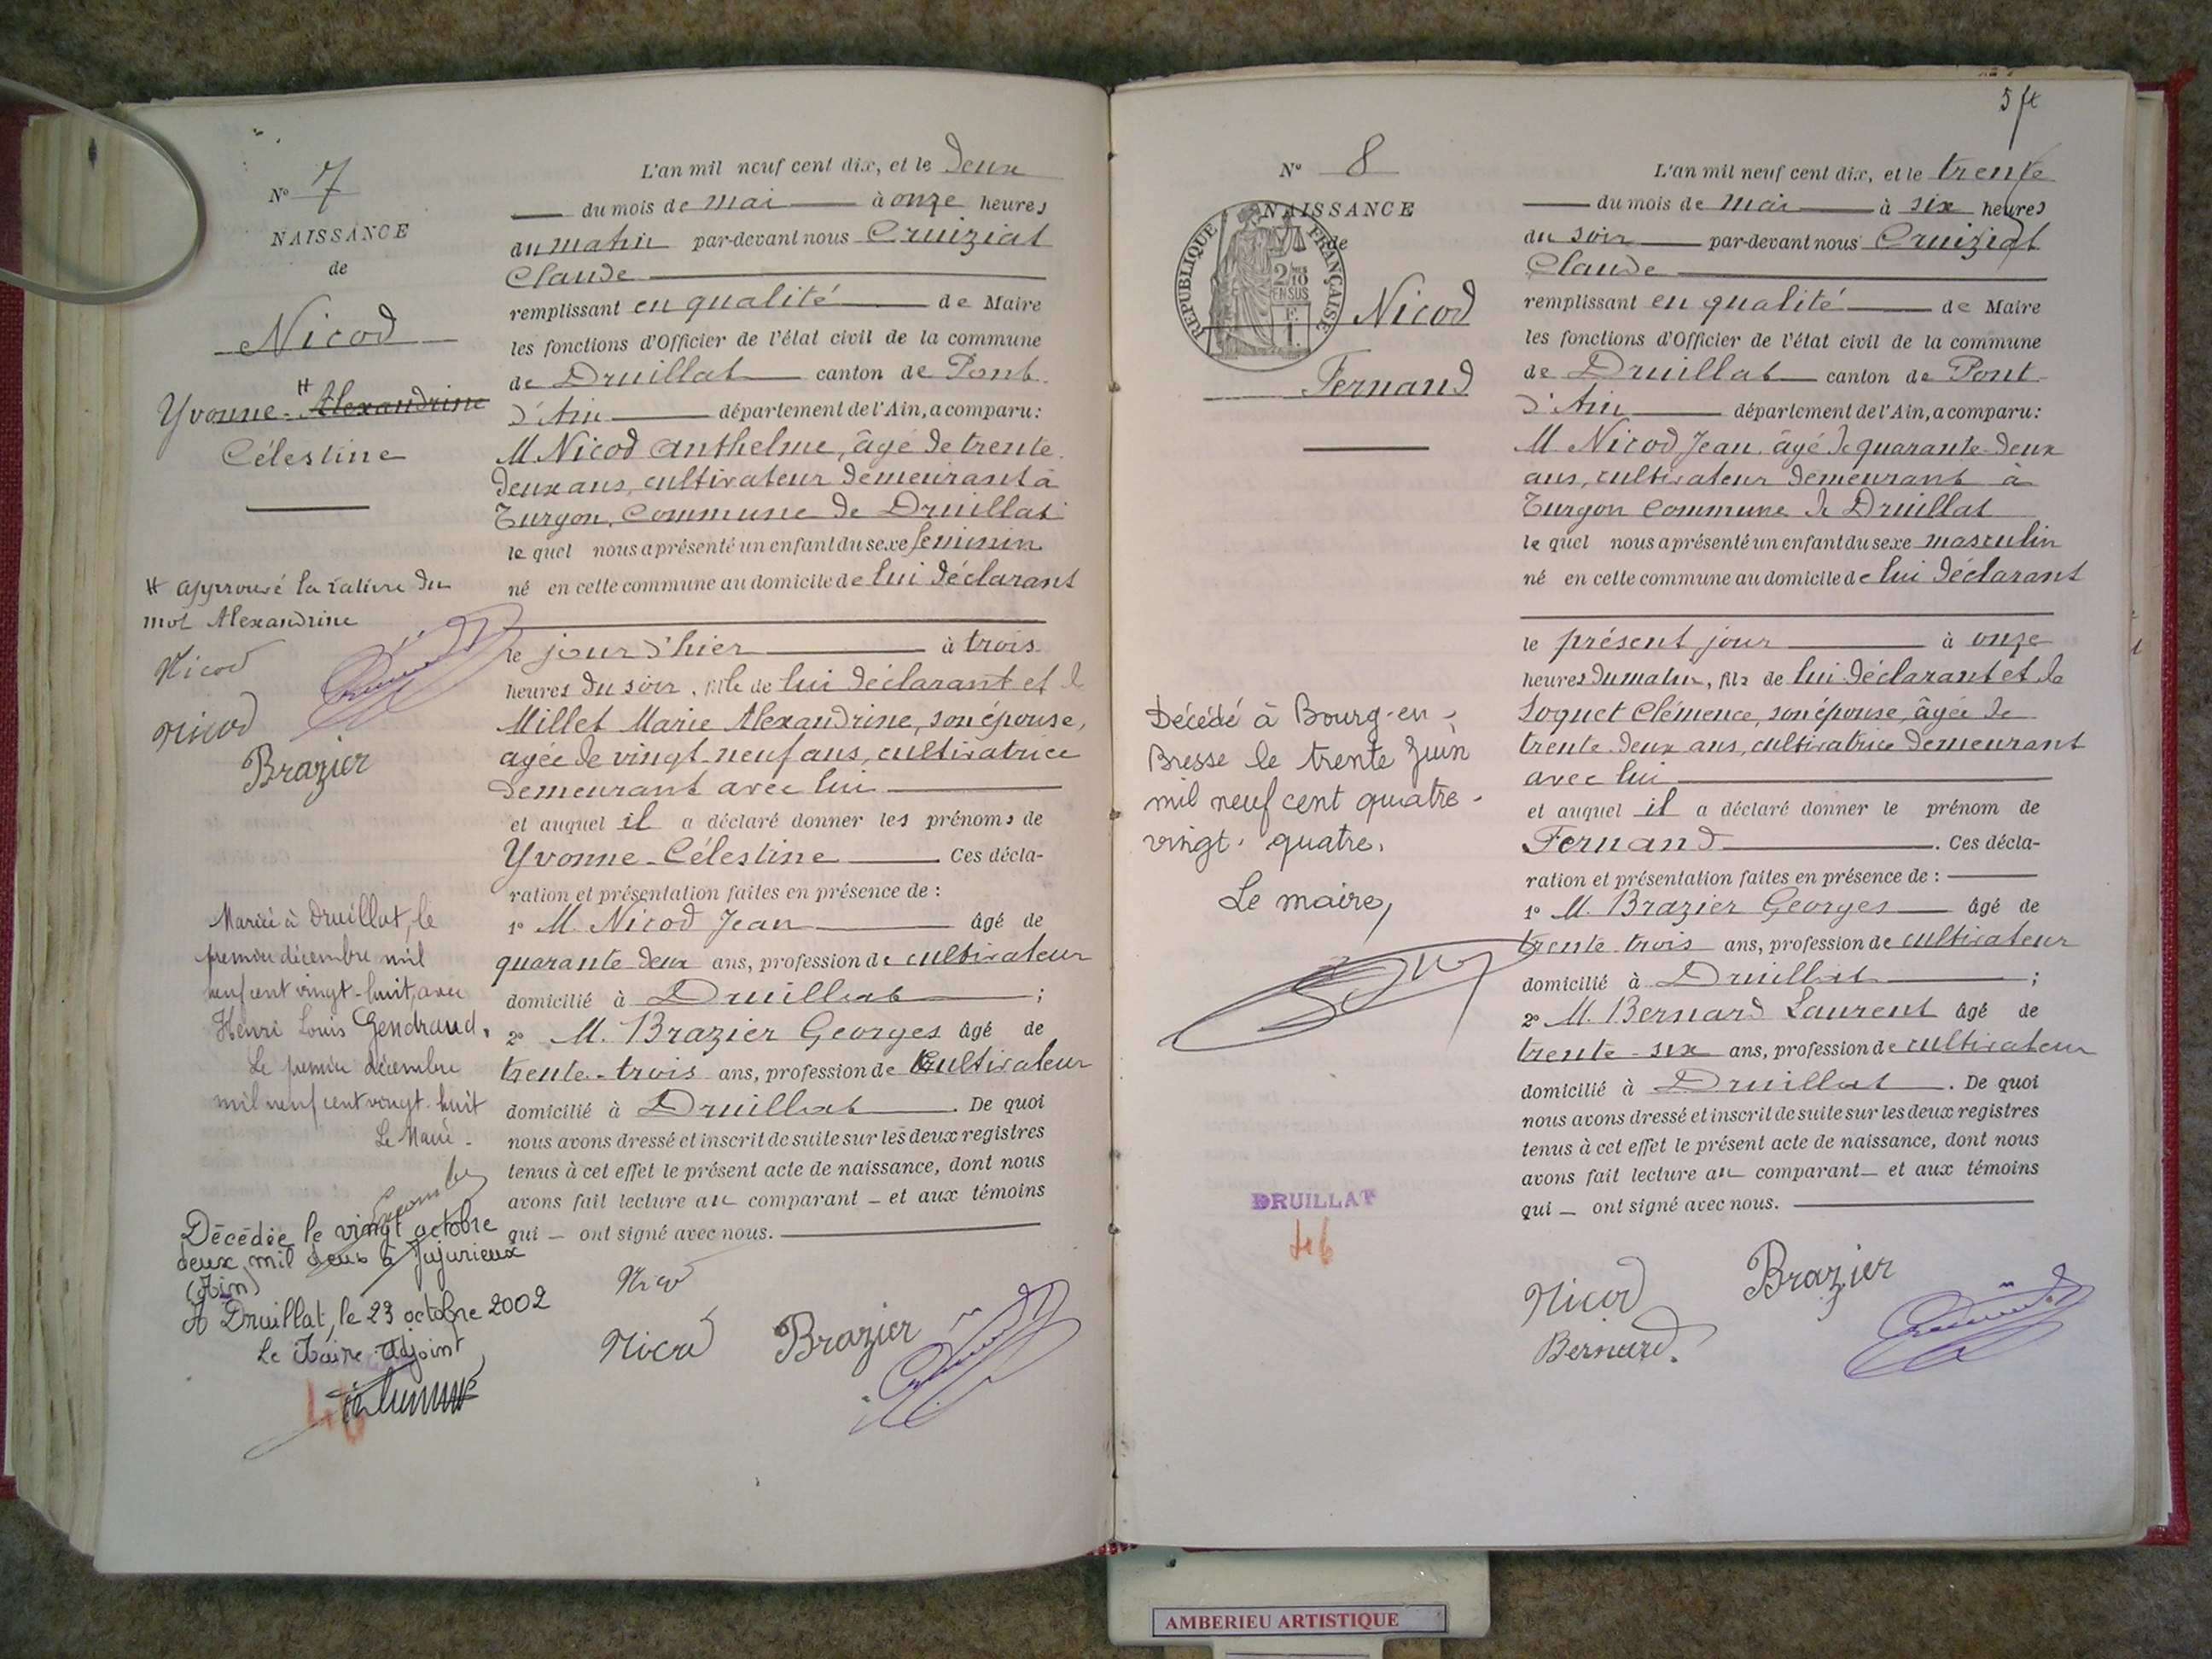 N° 7
NAISSANCE
de
Nicod
Yvonne - # Alexandrine
Célestine
# approuvé la rature du
mot Alexandrine
Nicod
Nicod
Brazier
Mariée à Druillat, le
premier décembre mil
neuf cent vingt-huit, avec
Henri Louis Gendraud.
Le premier décembre
mil neuf cent vingt-huit
Le Maire.
Décédée le vingt octobre
deux mil deux à Jujurieux
(Ain)
A Druillat, le 23 octobre 2002
Le Maire-Adjoint
46
L'an mil neuf cent dix, et le deux
du mois de mai à onze heures
du matin par-devant nous Cruiziat
Claude
remplissant en qualité de Maire
les fonctions d'Officier de l'état civil de la commune
de Druillat canton de Pont
d'Ain département de l'Ain, a comparu :
M Nicod Anthelme, âgé de trente
deux ans, cultivateur demeurant à
Turgon, commune de Druillat
le quel nous a présenté un enfant du sexe féminin
né en cette commune au domicile de lui déclarant
le jour d'hier à trois
heures du soir, fille de lui déclarant et de
Millet Marie Alexandrine, son épouse,
agée de vingt-neuf ans, cultivatrice
demeurant avec lui
et auquel il a déclaré donner les prénoms de
Yvonne-Célestine. Ces décla-
ration et présentation faites en présence de :
1° M. Nicod Jean âgé de
quarante-deux ans, profession de cultivateur
domicilié à Druillat ;
2° M. Brazier Georges âgé de
trente-trois ans, profession de cultivateur
domicilié à Druillat. De quoi
nous avons dressé et inscrit de suite sur les deux registres
tenus à cet effet le présent acte de naissance, dont nous
avons fait lecture au comparant et aux témoins
qui ont signé avec nous.
Nicod
Nicod Brazier
5
N° 8
NAISSANCE
de
REPUBLIQUE FRANÇAISE
2/10
EN SUS
F.
1.
Nicod
Fernand
Décédé à Bourg-en-
Bresse le trente Juin
mil neuf cent quatre-
vingt-quatre.
Le maire,
DRUILLAT
46
L'an mil neuf cent dix, et le trente
du mois de mai à six heures
du soir par-devant nous Cruiziat
Claude
remplissant en qualité de Maire
les fonctions d'Officier de l'état civil de la commune
de Druillat canton de Pont-
d'Ain département de l'Ain, a comparu :
M Nicod Jean, âgé de quarante-deux
ans, cultivateur demeurant à
Turgon commune de Druillat
le quel nous a présenté un enfant du sexe masculin
né en cette commune au domicile de lui déclarant
le présent jour à onze
heures du matin, fils de lui déclarant et de
Loquet Clémence, son épouse, âgée de
trente-deux ans, cultivatrice demeurant
avec lui
et auquel il a déclaré donner le prénom de
Fernand. Ces décla-
ration et présentation faites en présence de :
1° M. Brazier Georges âgé de
trente trois ans, profession de cultivateur
domicilié à Druillat ;
2° M. Bernard Laurent âgé de
trente-six ans, profession de cultivateur
domicilié à Druillat. De quoi
nous avons dressé et inscrit de suite sur les deux registres
tenus à cet effet le présent acte de naissance, dont nous
avons fait lecture au comparant et aux témoins
qui ont signé avec nous.
Nicod Brazier
Bernard.
AMBERIEU ARTISTIQUE